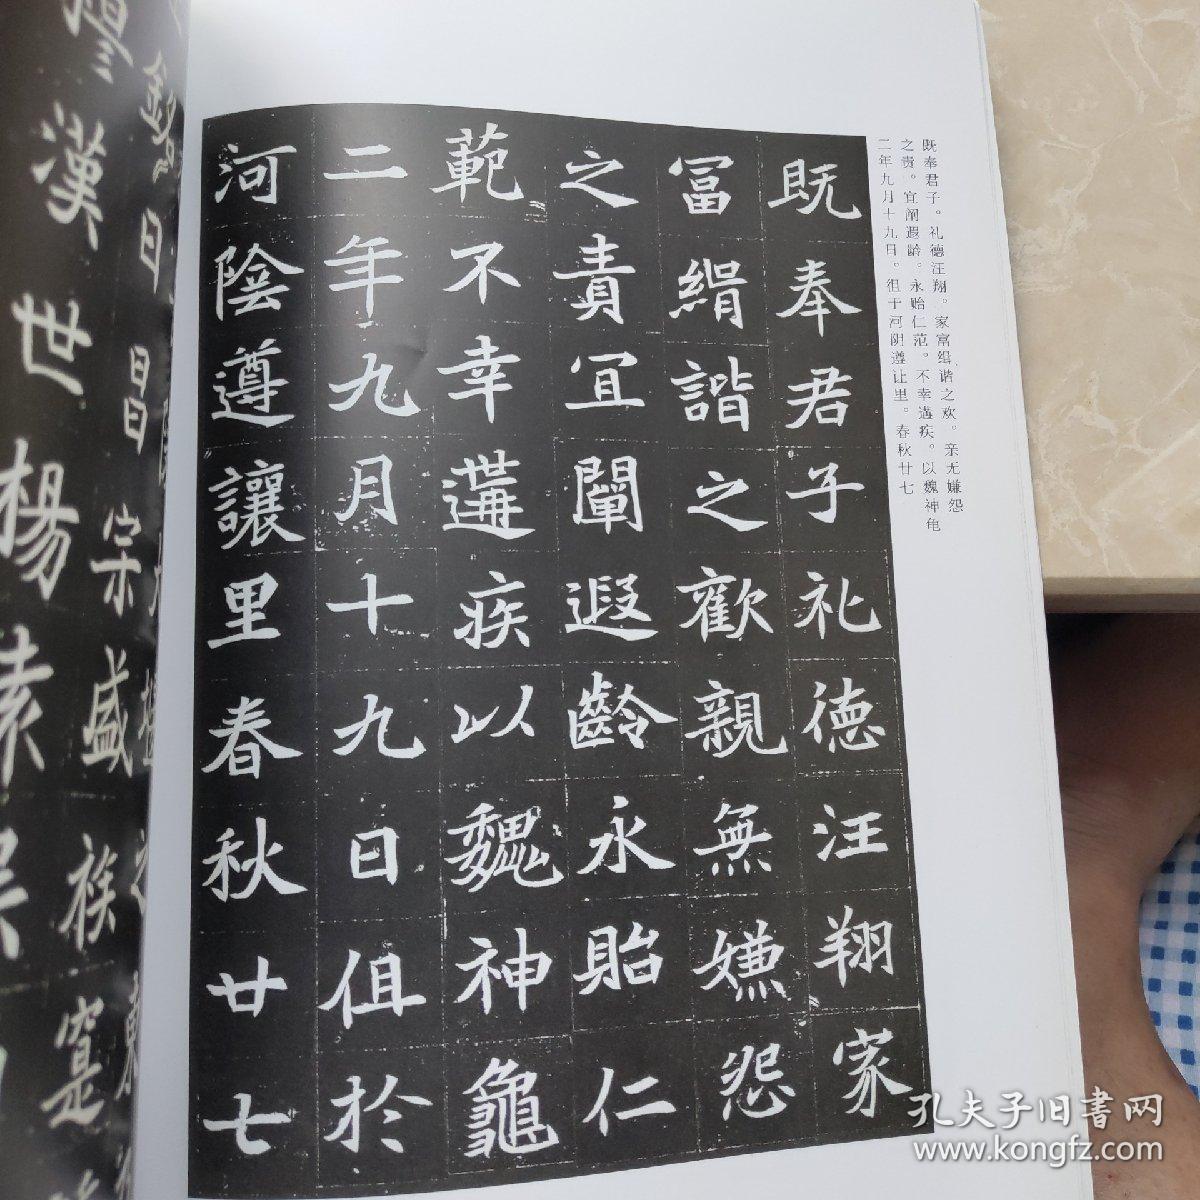 既奉君子礼德汪翔家
冨緝諧之歡親無嫌怨
之責冝闡遐齡永貽仁
範不幸遘疾以魏神龜
二年九月十九日徂於
河陰遵讓里春秋廿七
既奉君子。礼德汪翔。家富缉谐之欢。亲无嫌怨
之责。宜阐遐龄。永贻仁范。不幸遘疾。以魏神龟
二年九月十九日。徂于河阴遵让里。春秋廿七
銘曰
昌宗盛族寔
漢世楊
孔夫子旧書网
www.kongfz.com